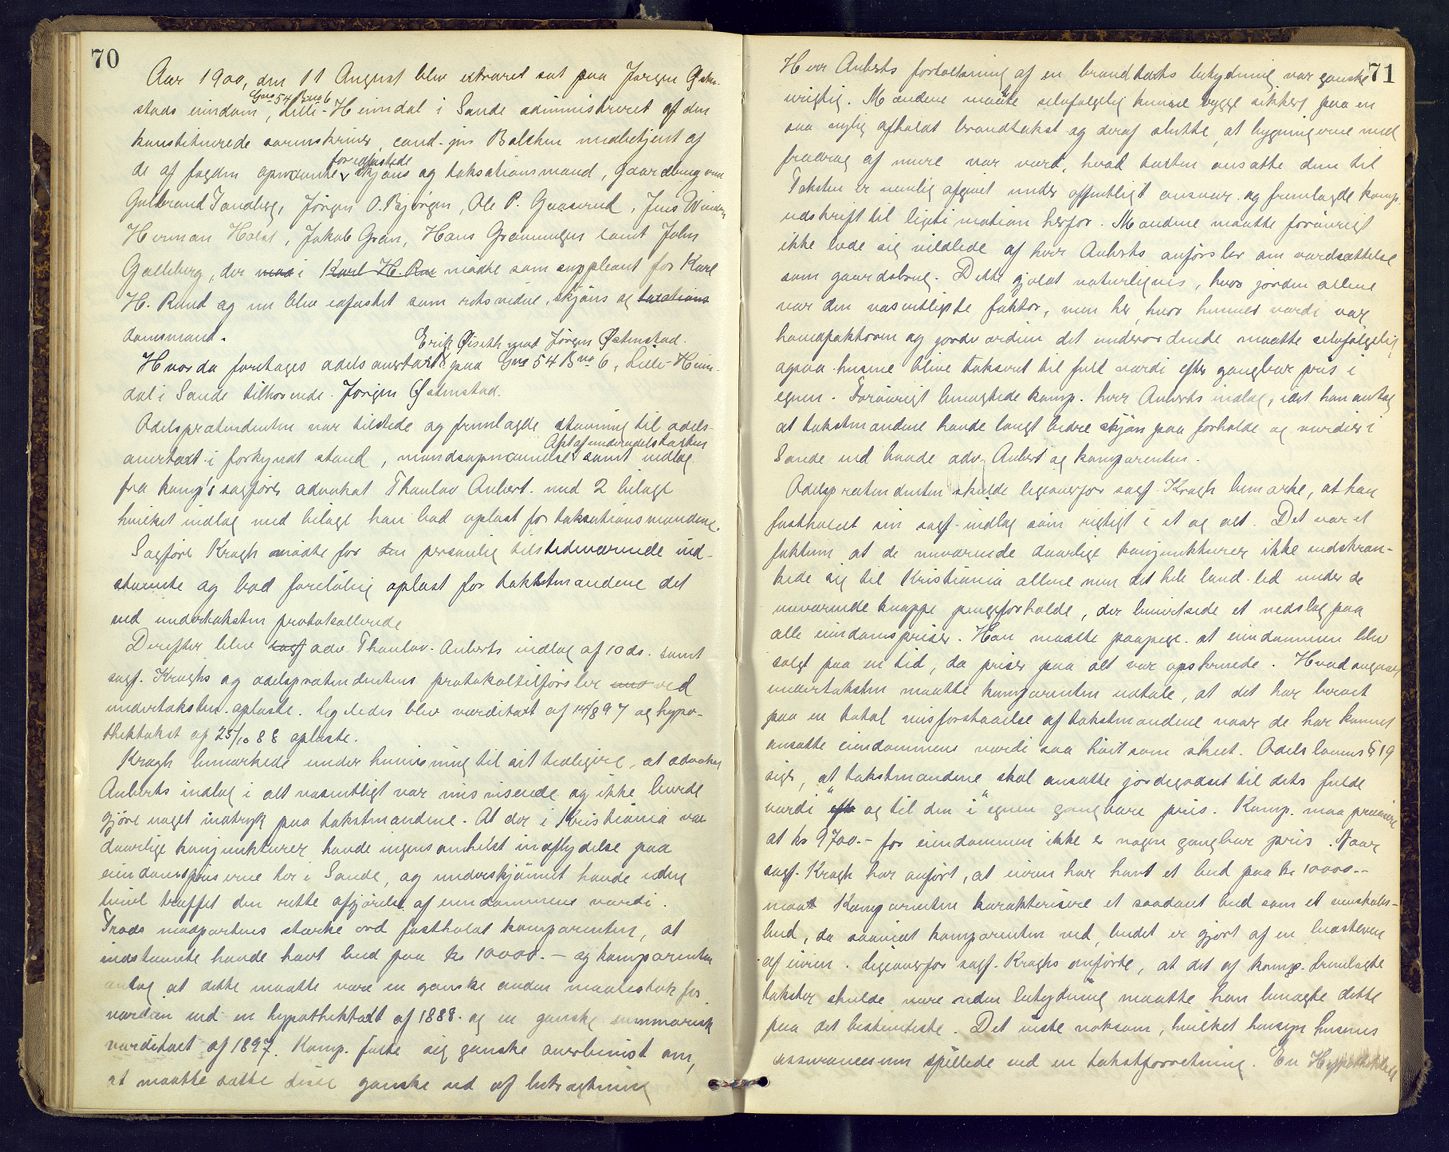 70
Aar 1900, den 11 August blev extraret sat paa Jørgen Østm-
stads eiendom, Gno 54 Bno 6 Lille-Heimdal i Sande administreret af den
konstituerede sorenskriver, cand. jur. Balchen medbetjent af
de af fogden opnævnte edfæstede skjøns og taksationsmænd, gaardbrugerne
Gulbrand Sandberg, Jørgen O. Bjørgen, Ole P. Gaaserud, Jens
Herman Holst, Jakob Gran, Hans Grønningen samt John
Galleberg, der mødte som suppleant for Karl
H. Rud og nu blev edfæstet som retsvidne, skjøns og taxations
domsmand.
Hvorda foretages odelsovertaxt paa Gno 54 Bno 6, Lille-Heim-
dal i Sande tilhørende Jørgen Østmstad.
Odelsprætendenten var tilstede og fremlagde stævning til odels-
overtaxt i forkyndt stand, mandsopnævnelse Afst af underodelstaksten samt indlæg
fra komp's sagfører advokat Thaulov Aubert med 2 bilage
hvilket indlæg med bilage han bad oplæst for taksationsmændene.
Sagfører Kragh mødte for den personlig tilstedeværende ind-
stævnte og bad foreløbig oplæst for takstmændene det
ved undertaksten protokollerede
Derefter blev adv. Thaulov-Auberts indlæg af 10 ds. samt
sagf. Kraghs og odelsprætendentens protokoltilførsler ved
undertaksten oplæste. Ligeledes blev værditaxt af 14/8 97 og hypo-
thektakst af 25/10 88 oplæste.
Kragh bemærkede under henvisning til sit tidligere, at advokat
Auberts indlæg i alt væsentligt var misvisende og ikke burde
gjøre noget indtryk paa takstmændene. At der i Kristiania var
daarlige konjunkturer havde ingensomhelst indflydelse paa
eiendomspriserne her i Sande, og underskjønnet havde uden
tvivl truffet den rette afgjørelse af eiendommens værdi.
Trods modpartens stærke ord fastholdt komparenten, at
indstævnte havde havt bud paa kr 10000.- og komparenten
antog at dette maatte være en ganske anden maalestok for
værdien end en hypothektaxt af 1888 og en ganske summarisk
værditaxt af 1897. Komp. følte sig ganske overbevist om,
at maatte sætte disse ganske ud af betragtning
71
Herr Auberts fortolkning af en brandtaksts betydning var ganske
urigtig. Mændene maatte selvfølgelig kunne bygge sikkert paa en
saa nylig afholdt brandtakst og deraf slutte, at bygningerne med
fradrag af mure var værd, hvad taxten ansatte dem til
Taksten er nemlig afgivet under offentligt ansvar og fremlagde komp.
udskrift til legitimation herfor. Mændene maatte forøvrigt
ikke lade sig vildlede af herr Auberts anførsler om værdsættelse
som gaardsbrug. Dette gjældt naturligvis, hvor jorden allene
var den væsentligste faktor, men her, hvor husenes værdi var
hovedfaktoren og jordværdien det underordnede maatte selvfølgelig
ogsaa husene blive taksert til fuld værdi efter gangbar pris i
egnen. Forøvrigt benægtede komp. herr Auberts indlæg, idet han antog
at takstmændene havde langt bedre skjøn paa forholde og værdier i
Sande end baade adv. Aubert og komparenten.
Odelsprætendenten skulde ligeoverfor sagf. Kragh bemærke, at han
fastholdt sin sagf. indlæg som rigtigt i et og alt. Det var et
faktum at de nuværende daarlige konjunkturer ikke indskræn-
kede sig til Kristiania allene men det hele land led under de
nuværende knappe pengeforholde, der bevirkede et nedslag paa
alle eiendomspriser. Han maatte paapege at eiendommen blev
solgt paa en tid, da priser paa alt var opskruede. Hvad angaar
undertaksten maatte komparenten udtale, at det har beroet
paa en total misforstaaelse af takstmændene naar de har kunnet
ansætte eiendommens værdi saa høit som skeet. Odelslovens § 19
siger, at takstmændene skal ansætte jordegodset til dets fulde
værdi og til den i "egnen gangbare pris. Komp. maa præcisere
at kr 9700.- for eiendommen ikke er nogen gangbar pris. Naar
sagf. Kragh har anført, at eieren har havt et bud paa kr 10000.-
maatte komparenten karakterisere et saadant bud som et venskabs-
bud, da saavidt komparenten ved, budet er gjort af en beslægtet
af eieren. Ligeoverfor sagf. Kraghs anførte, at det af komp. fremlagte
takster skulde være uden betydning maatte han benægte dette
paa det bestemteste. Det viste noksom, hvilket hensyn husenes
assurancesum spillede ved en takstforretning. En Hypothektakst